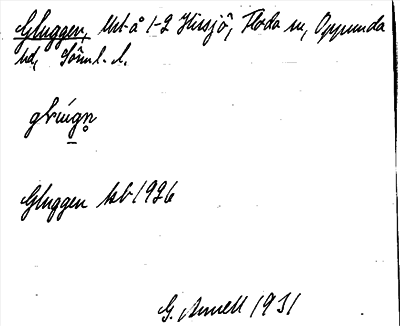 Gluggen, Urt å 1-2 Hissjö, Floda sn, Oppunda
hd, Söml. l.
Gluggen hb 1926
G. Annell 1931